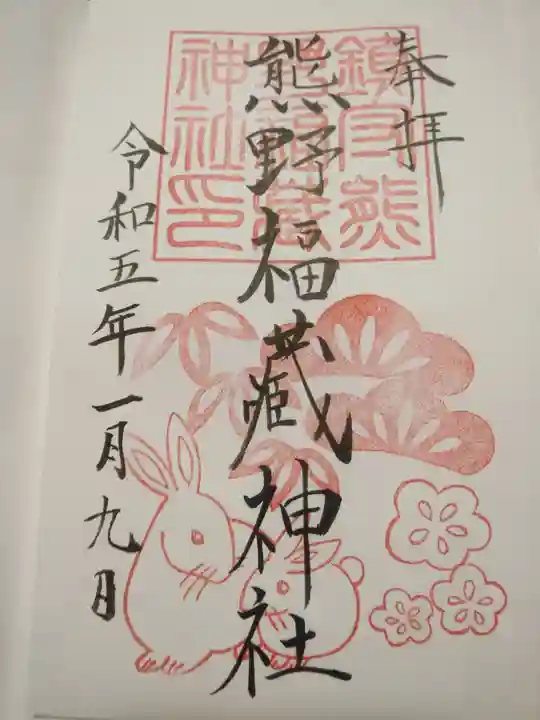 奉拝
熊野福蔵神社
令和五年一月九日
鎮守熊
野福蔵
神社印